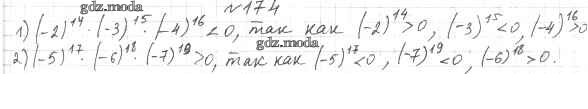 №174
1) (-2)¹⁴ · (-3)¹⁵ · (-4)¹⁶ < 0, так как (-2)¹⁴ > 0, (-3)¹⁵ < 0, (-4)¹⁶ > 0
gdz.moda
gdz.moda
2) (-5)¹⁷ · (-6)¹⁸ · (-7)¹⁹ > 0, так как (-5)¹⁷ < 0, (-7)¹⁹ < 0, (-6)¹⁸ > 0.
gdz.moda